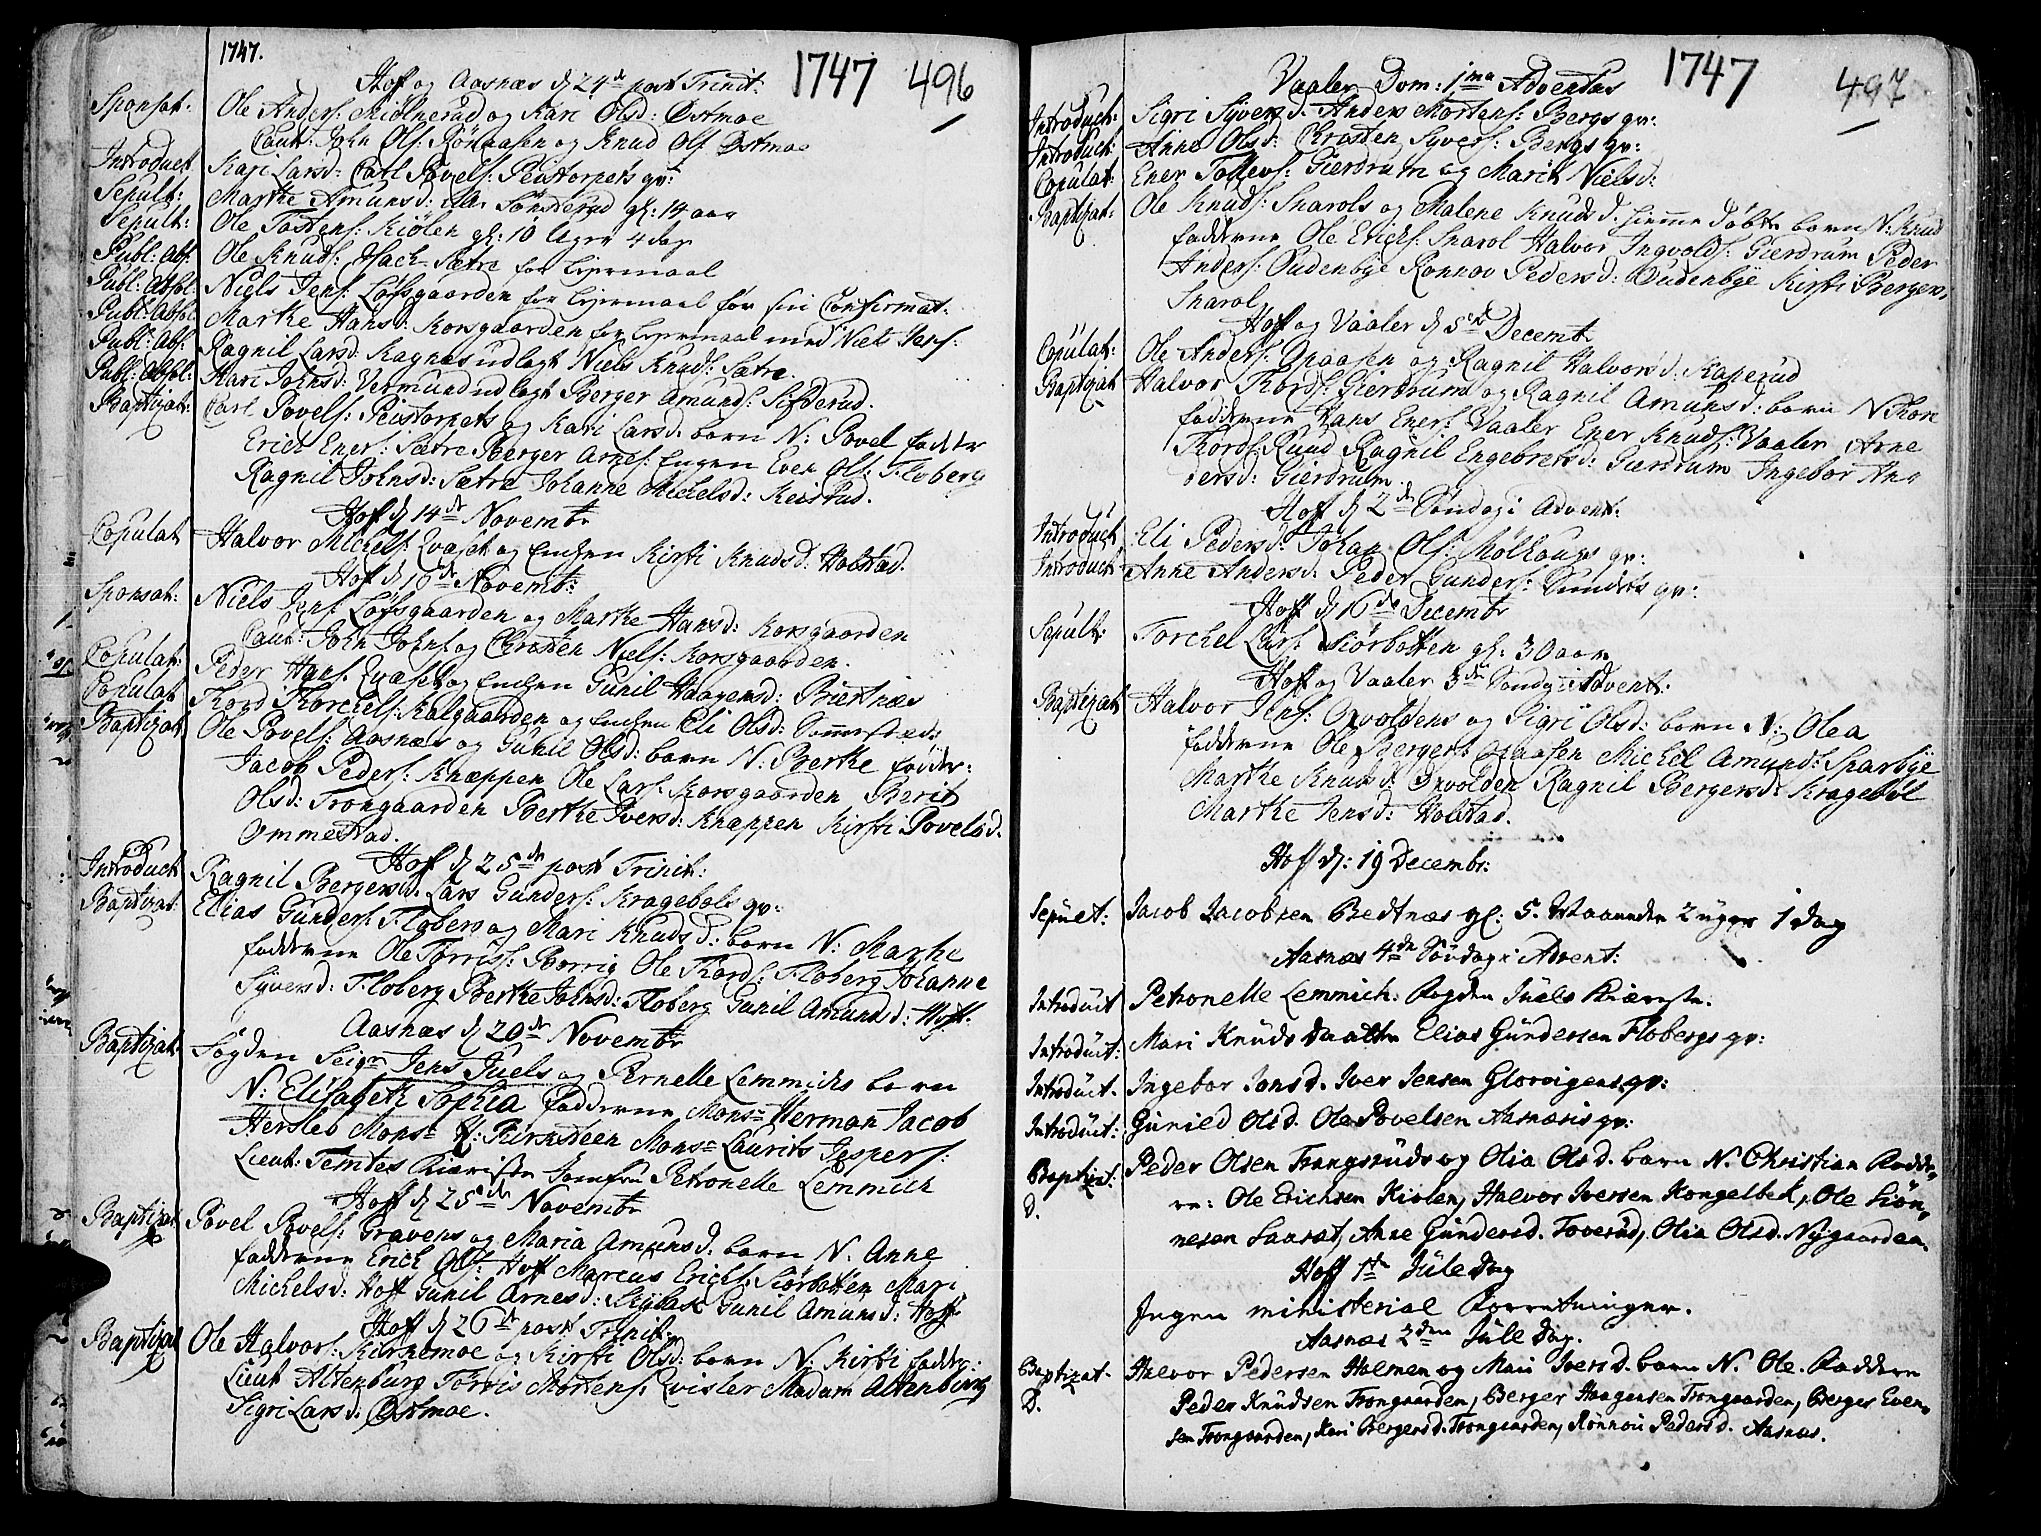 1747.
1747 496
Hoff og Aasnæs d 24de post Trinit:
Sponsat: Ole Anders: Miölnerud og Kari Olsd: Östmoe
Caut: John Ols: Rönaasen og Knud Ols: Östmoe
Introduct Kari Larsd: Carl Povels: Peistorpets qv:
Sepult: Marthe Amunds d: Sönsterud gl: 14 aar
Sepult: Ole Tostens: Kiölen gl: 10 Uger 4 dage
Publ: Abs: Ole Knuds: Hach-Sætre for Leiermaal
Publ: Absol: Niels Jens: Löfsgaarden for Leiermaal för sin Confirmat:
Publ: Absol Marthe Hansd: Korsgaarden for Leiermaal med Niels Jens:
Publ: Abs: Ragnil Larsd: Kagnæs udlagt Niels Knuds: Sætre.
Publ: Absol: Mari Johnsd: Vermund udlagt Berger Amunds: Sisderud.
Baptizat: Carl Povels: Peistorpets og Kari Larsd: barn N: Povel fadder
Erich Eners: Sætre Berger Arnes: Engen Even Ols: Floberg
Ragnil Johnsd: Sætre Johanne Michelsd: Keistad.
Hoff d 14de Novembr
Copulat Halvor Michels: Qvæset og Enchen Kirsti Knudsd: Holstad.
Hoff d 16de Novemb:
Sponsat: Niels Jens: Löfsgaarden og Marthe Hansd: Korsgaarden
Caut: John Johns: og Christen Niels: Korsgaarden.
Copulat: Peder Hans: Qvæset og Enchen Gunil Haagensd: Biertnæs
Copulat Thord Thorchels: Kalgaarden og Enchen Eli Olsd: Sommerstad
Baptizat Ole Povels: Aasnæs og Gunil Olsd: barn N: Berthe fadder:
Jacob Peders: Knæppen Ole Lars: Korsgaarden Berit
Olsd: Trongaarden Berthe Iversd: Knæppen Kirsti Povelsd.
Ommestad.
Hoff d 25de post Trinit:
Introduct Ragnil Bergersd: Lars Gunders: Kragebøls qv:
Baptizat: Elias Gunders: Floberg og Mari Knudsd: barn N: Marthe
fadderne Ole Torris: Borrig Ole Thords: Floberg Johanne
Syversd: Floberg Berthe Johnsd: Floberg Gunil Amundsd: Hoff.
Aasnæs d 20de Novembr
Baptizat: Fogden Seigr Jens Juels og Pernelle Lemmichs barn
N: Elisabeth Sophia fadderne Monsr Herman Jacob
Hersleb Monsr H: Fürnsteen Monsr Laurits Jespers:
Lieut: Temtes Kieriste Jomfru Petronelle Lemmich
Hoff d 25de Novembr
Baptizat Povel Povels: Gravens og Maria Amunsd: barn N. Anne
fadderne Erich Ols: Hoff Marcus Erichs: Siörbotten Mari
Michelsd: Hoff Gunil Arnesd: Skÿbak Gunil Amunsd: Hoff
Hoff d 26de post Trinit:
Baptizat Ole Halvors: Kirkemoe og Kirsti Olsd: barn N: Kirsti fadder:
Lieut Altenburg Torris Mortens: Qvisler Madam Altenburg
Sigri Larsd: Östmoe.
1747 497
Vaaler Dom: 1ma Adventus
Introduct: Sigri Syversd. Anders Mortens: Bergs qv:
Introduct: Anne Olsd: Christen Syvers: Bergs qv:
Copulat: Ener Tollevs: Gierdrum og Marit Nielsd:
Baptizat: Ole Knuds: Snarols og Malene Knudsd. hieme döbte barn N: Knud
fadderne Ole Erichs: Snarol Halvor Ingvolds: Gierdrum Peder
Anders: Oudenbye Ronnov Pedersd: Oudenbye Kirsti Bergers.
Snarol
Hoff og Vaaler d 5de Decembr
Copulat: Ole Anders: Opaasen og Ragnil Halvorsd: Kaperud
Baptizat Halvor Thords: Gierdrum og Ragnil Amunsd: barn N Thore
fadderne Hans Eners: Vaaler Ener Knuds: Vaaler Arne
Thords: Ruud Ragnil Engebretsd: Gierdrum Ingebor An-
dersd: Gierdrum.
Hoff d 2de Söndag i Advent:
Introduct Eli Pedersd: Johan Ols: Mölhougs qv:
Introduct Anne Andersd: Peder Gunders: Sundets qv:
Hoff d 16de Decembr
Sepult: Torchel Lars: Siörbotten gl: 30 aar
Hoff og Vaaler 3de Söndag i Advent:
Baptizat Halvor Jens: Opvoldens og Sigri Olsd: barn N: Olea
fadderne Ole Bergers: Opaasen Michel Amund: Sparbye
Marthe Knudsd: Opvolden Ragnil Bergersd: Kragebøl
Marthe Jensd: Holstad.
Hoff d: 19 Decembr:
Sepult: Jacob Jacobsen Bedtnæs gl: 5. Maaneder 2 uger 1 dag
Aasnæs 4de Söndag i Advent:
Introduct Petronelle Lemmich: Fogden Juels Kiæreste.
Introduct: Mari Knuds Daatter Elias Gundersen Flobergs qv:
Introduct. Ingebor Jonsd. Iver Jensen Glorvigens qv:
Introduct: Guniled Olsd. Ole Povelsen Aasnæsis qv:
Baptizat: Peder Olsen Trangsruds og Olia Olsd. barn N. Christian Fadde-
D. re: Ole Erichsen Kiölen, Halvor Iversen Kongelbek, Ole Siön-
nesen Saaset, Anne Gundersd. Toverud, Olia Olsd. Nygaarden.
Hoff 1te Jule Dag
Ingen ministerial Forretninger.
Aasnæs 2den Jule Dag.
Baptizat. Halvor Pedersen Holmen og Mari Iversd. barn N. Ole. Faddere
D. Peder Knudsen Trongaarden, Berger Haagensen Trongaarden, Berger Even-
sen Trongaarden, Kari Bergersd. Trongaarden, Rönnou Pedersd. Aasnæs.